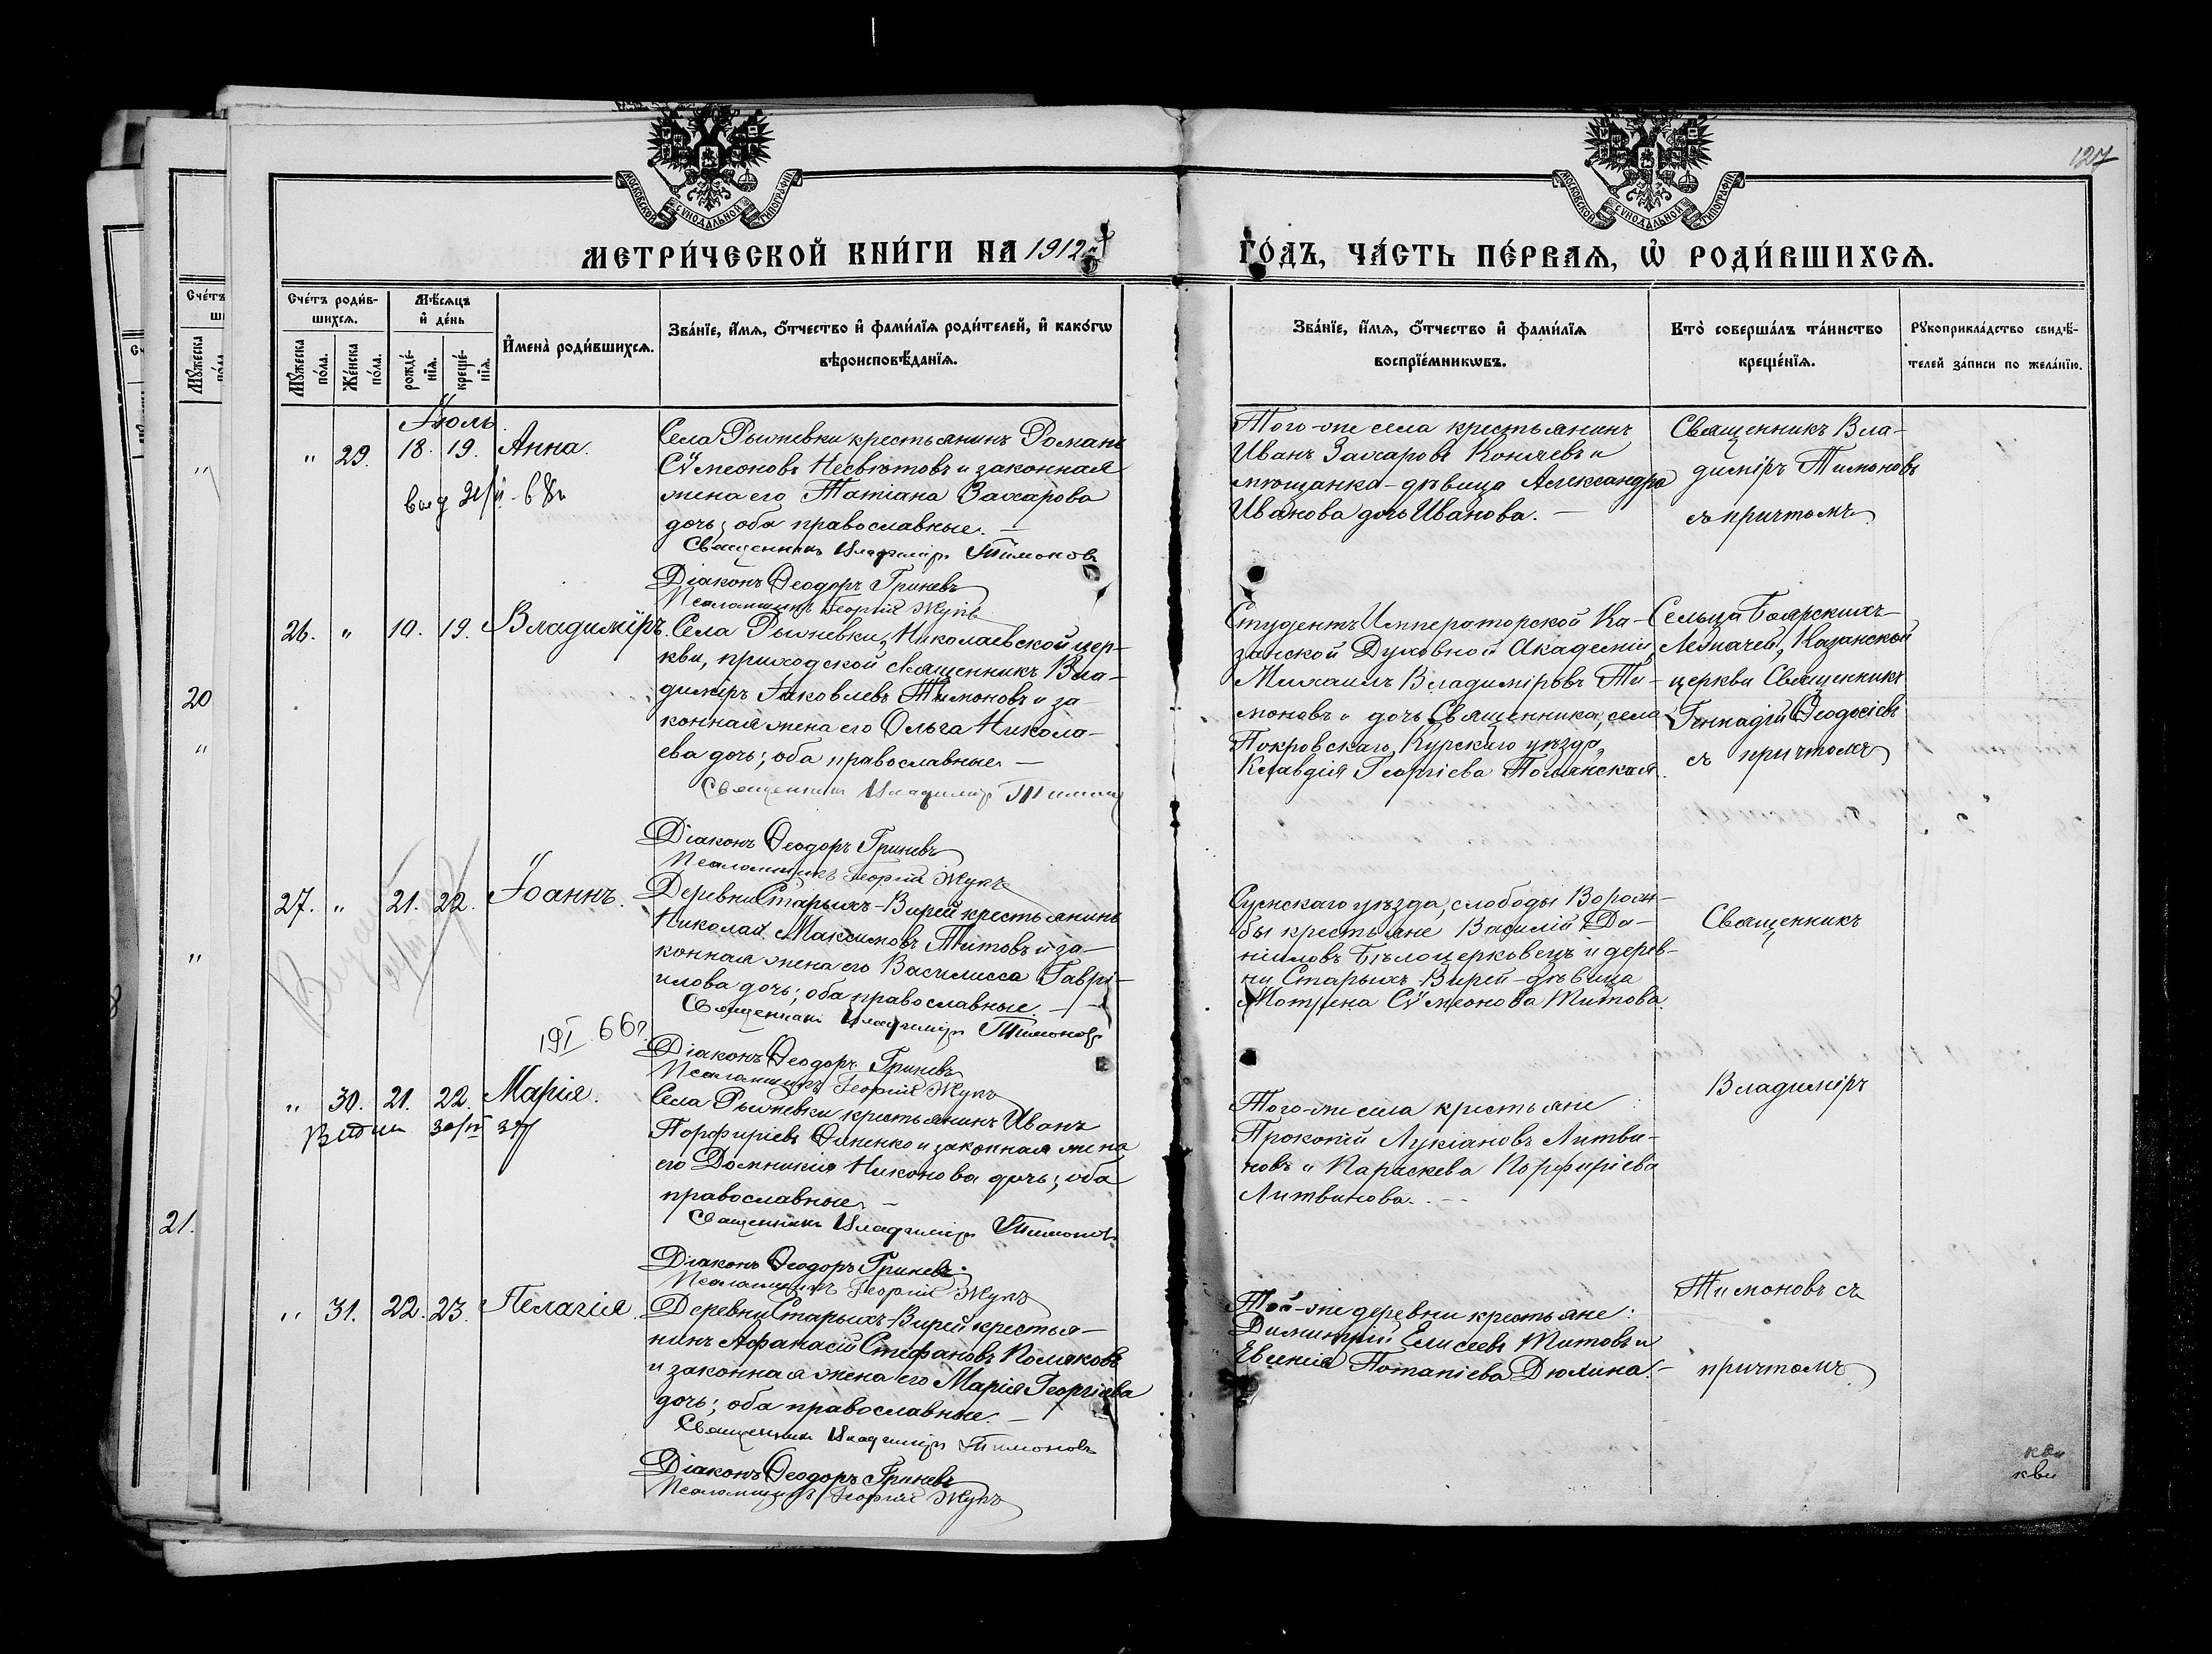 МОСКОВСКОЙ СУНОДАЛЬНОЙ ТИПОГРАФІИ
МОСКОВСКОЙ СУНОДАЛЬНОЙ ТИПОГРАФІИ
127
МЕТРИ́ЧЕСКОЙ КНИ́ГИ НА 1912 ГО́ДЪ, ЧА́СТЬ ПЕ́РВАѦ, Ѡ РОДИ́ВШИХСѦ.
Сче́тъ роди́в-
шихсѧ.
Мꙋ́жеска по́ла.
Же́нска по́ла.
Мѣ́сѧцъ
и҆ де́нь
рожде́-
нїѧ.
креще́-
нїѧ.
И҆мена̀ роди́вшихсѧ.
Зва́нїе, и҆́мѧ, ѻ҆́тчество и҆ фами́лїѧ роди́телей, и҆ како́гѡ
вѣроисповѣ́данїѧ.
Зва́нїе, и҆́мѧ, ѻ҆́тчество и҆ фами́лїѧ
воспрїе́мникѡвъ.
Кто̀ соверша́лъ та́инство
креще́нїѧ.
Рꙋкоприкла́дство свидѣ́-
телей за́писи по жела́нїю.
Іюль.
" 29. 18. 19. Анна.
Села Рыжевки крестьянинъ Романъ
Сѵмеоновъ Несвѣтовъ и законная
жена его Татіана Захарова
дочь; оба православные. —
Священникъ Владиміръ Тимоновъ
Діаконъ Ѳеодоръ Гриневъ
Псаломщикъ Георгій Жукъ
Того-же села крестьянинъ
Иванъ Захаровъ Коняевъ и
мѣщанка-дѣвица Александра
Иванова дочь Иванова. —
Священникъ Вла-
диміръ Тимоновъ
съ причтомъ
26. " 19. 19. Владиміръ.
Села Рыжевки, Николаевской цер-
кви, приходской священникъ Вла-
диміръ Іаковлевъ Тимоновъ и за-
конная жена его Ольга Никола-
ева дочь; оба православные. —
Священникъ Владиміръ Тимоновъ
Діаконъ Ѳеодоръ Гриневъ
Псаломщикъ Георгій Жукъ
Студентъ Императорской Ка-
занской Духовной Академіи,
Михаилъ Владиміровъ Ти-
моновъ и дочь Священника, села
Покровскаго, Курскаго уѣзда,
Клавдія Георгіева Полянская.
Сельца Боярскихъ-
Лежачей, Казанской
церкви Священникъ
Геннадій Ѳеодосіевъ
съ причтомъ
27. " 21. 22. Іоаннъ.
Деревни Старыхъ-Вирей крестьянинъ
Николай Максимовъ Титовъ и за-
конная жена его Василисса Гаврі-
илова дочь; оба православные. —
Священникъ Владиміръ Тимоновъ
Діаконъ Ѳеодоръ Гриневъ
Псаломщикъ Георгій Жукъ
Сумскаго уѣзда, слободы Ворож-
бы крестьяне Василій Да-
ніиловъ Бѣлоцерковецъ и дерев-
ни Старыхъ-Вирей-дѣвица
Мотрена Сѵмеонова Титова.
Священникъ
" 30. 21. 22. Марія.
Села Рыжевки крестьянинъ Иванъ
Порфиріевъ Олненко и законная жена
его Домникія Никонова дочь; оба
православные. —
Священникъ Владиміръ Тимоновъ
Діаконъ Ѳеодоръ Гриневъ
Псаломщикъ Георгій Жукъ
Того-же села крестьяне:
Прокопій Лукіановъ Литви-
новъ и Параскева Порфиріева
Литвинова. —
Владиміръ
" 31. 22. 23. Пелагія.
Деревни Старыхъ-Вирей крестья-
нинъ Аѳанасій Стефановъ Поляковъ
и законная жена его Марія Георгіева
дочь; оба православные. —
Священникъ Владиміръ Тимоновъ
Діаконъ Ѳеодоръ Гриневъ
Псаломщикъ Георгій Жукъ
Той-же деревни крестьяне:
Димитрій Елисеевъ Титовъ и
Евгенія Потапіева Дюкина. —
Тимоновъ съ
причтомъ
20
21.